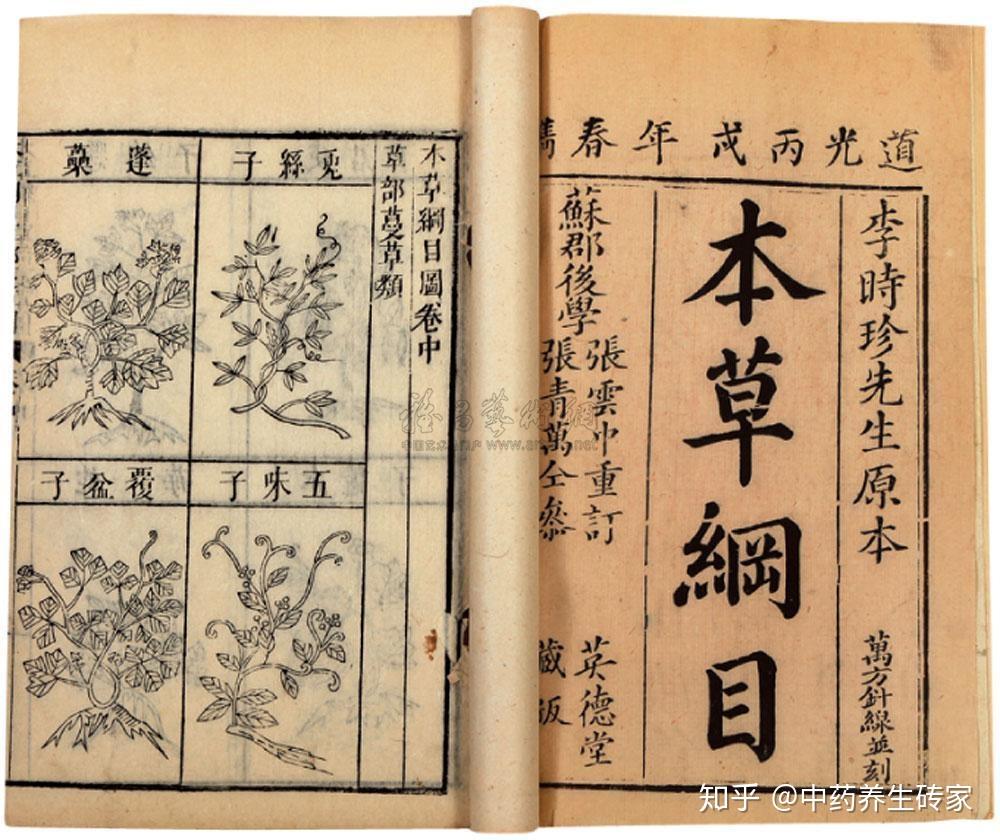 道光丙戌年春鐫
李時珍先生原本
萬方針線並刻
本草綱目
蘇郡後學
張雲中重訂
張青萬仝參
英德堂
藏版
本草綱目圖卷中
草部蔓草類
兎絲子
蓬蘽
五味子
覆盆子
知乎 @中药养生砖家